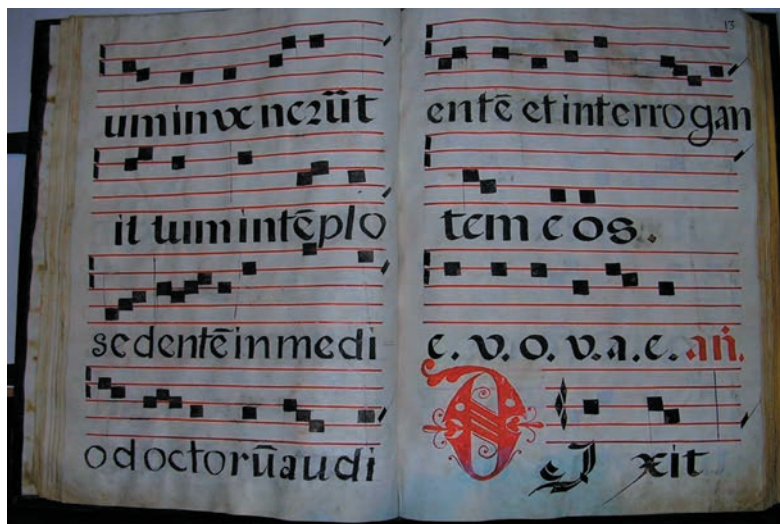 um in ve nerūt
il lum in tēplo
sedentē in medi
o doctorū audi
13
entē et interrogan
tem eos.
e. v. o. v. a. e. an̄.
DI xit